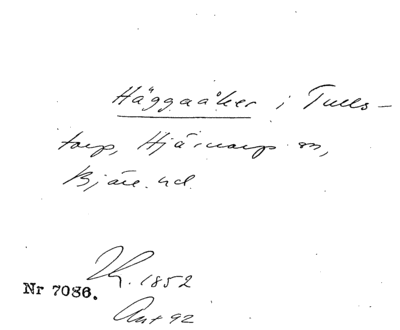 Häggaåker i Tulls-
torp, Hjärnarp sn,
Bjäre hd.
1852
Nr 7086.
Ant 92